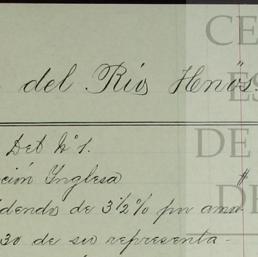 del Río Hnos.
Det Nº 1.
ción Inglesa
dendo de 3½% pr ano
30 de seo representa-
CE
ES
DE
DE